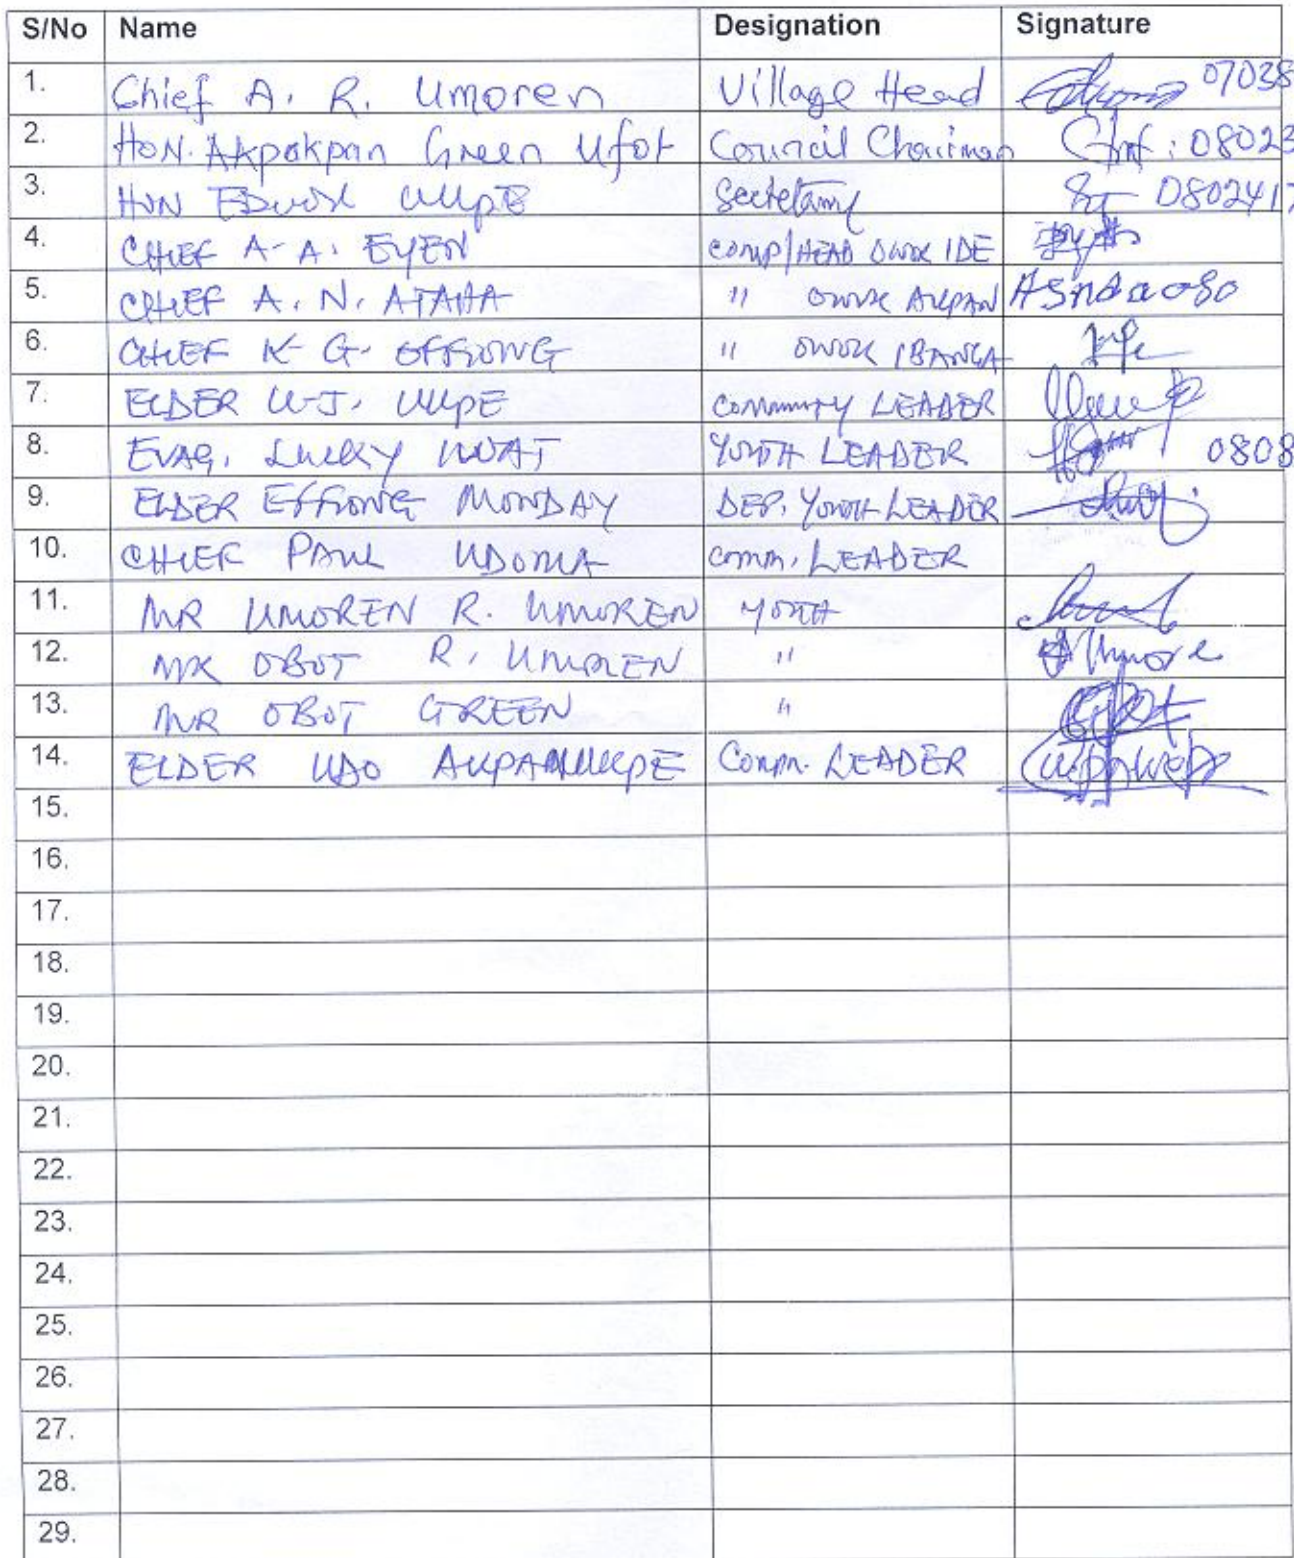 S/No Name Designation Signature
1. Chief A. R. Umoren Village Head 07038
2. HON. Akpakpan Green Ufot Council Chairman : 08023
3. HON UKPE Secretary 0802417
4. CHIEF A. A. EYEN COMP/HEAD OWOK IDE
5. CHIEF A. N. ATAHA " OWOK AKPAN
6. CHIEF K G. EFFIONG " OWOK IBANGA
7. ELDER U.J. UKPE COMMUNITY LEADER
8. EVAG. LUCKY YOUTH LEADER 0808
9. ELDER EFFIONG MONDAY DEP. YOUTH LEADER
10. CHIEF PAUL UDOMA COMM. LEADER
11. MR UMOREN R. UMOREN YOUTH
12. MR OBOT R. UMOREN "
13. MR OBOT GREEN "
14. ELDER UDO AKPANUKPE Comm. LEADER
15.
16.
17.
18.
19.
20.
21.
22.
23.
24.
25.
26.
27.
28.
29.